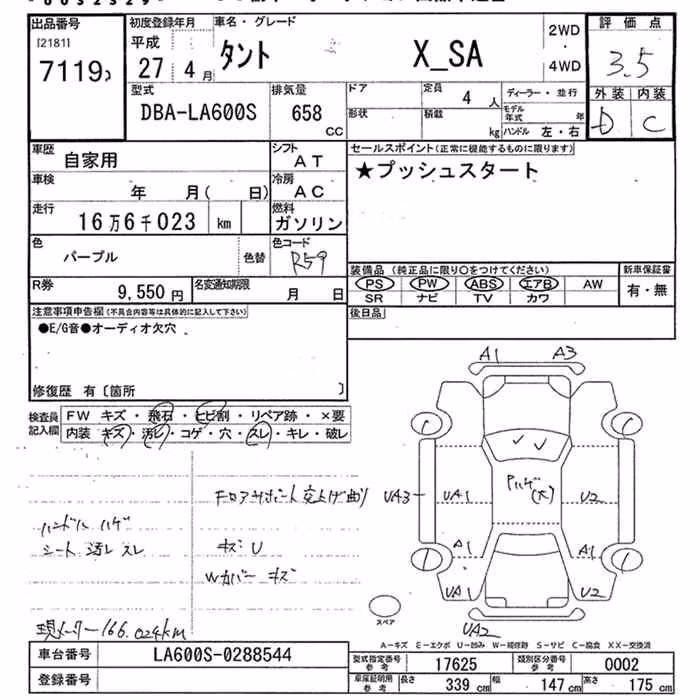 出品番号
[2181]
7119
初度登録年月
平成
27 4月
車名・グレード
タント X_SA
2WD
・
4WD
評価点
3.5
外装 内装
D C
型式
DBA-LA600S
排気量
658
CC
ドア
形状
定員
4 人
積載
kg
ディーラー・並行
モデル年式 年
ハンドル 左・右
車歴
自家用
シフト
AT
車検
年 月( 日)
冷房
AC
走行
16万6千023 km
燃料
ガソリン
セールスポイント(正常に機能するものに限ります)
★プッシュスタート
色
パープル
色替
色コード
R59
R券
9,550円
名変通知期限
月 日
装備品 (純正品に限り○をつけてください)
PS PW ABS エアB AW
SR ナビ TV カワ
新車保証書
有・無
後日品
注意事項申告欄(不具合内容等は具体的に記入して下さい)
●E/G音●オーディオ欠穴
修復歴 有〔箇所 〕
検査員記入欄
FW キズ・飛石・ヒビ割・リペア跡・×要
内装 キズ・汚レ・コゲ・穴・スレ・キレ・破レ
フロアサポート突上げ曲り
ハンドル ハゲ
シート 汚レ スレ
キズ U
Wカバー キズ
現メーター166,024km
A1 A3
Pハゲ
(大)
UA3 UA1 U2
A1 A1
UA1 U2
UA2
スペア
A-キズ E-エクボ U-凹み W-補修跡 S-サビ C-腐食 XX-交換済
車台番号
LA600S-0288544
登録番号
型式指定番号
参考
17625
類別区分番号
参考
0002
車庫証明用
参考
長さ 339cm 幅 147cm 高さ 175cm